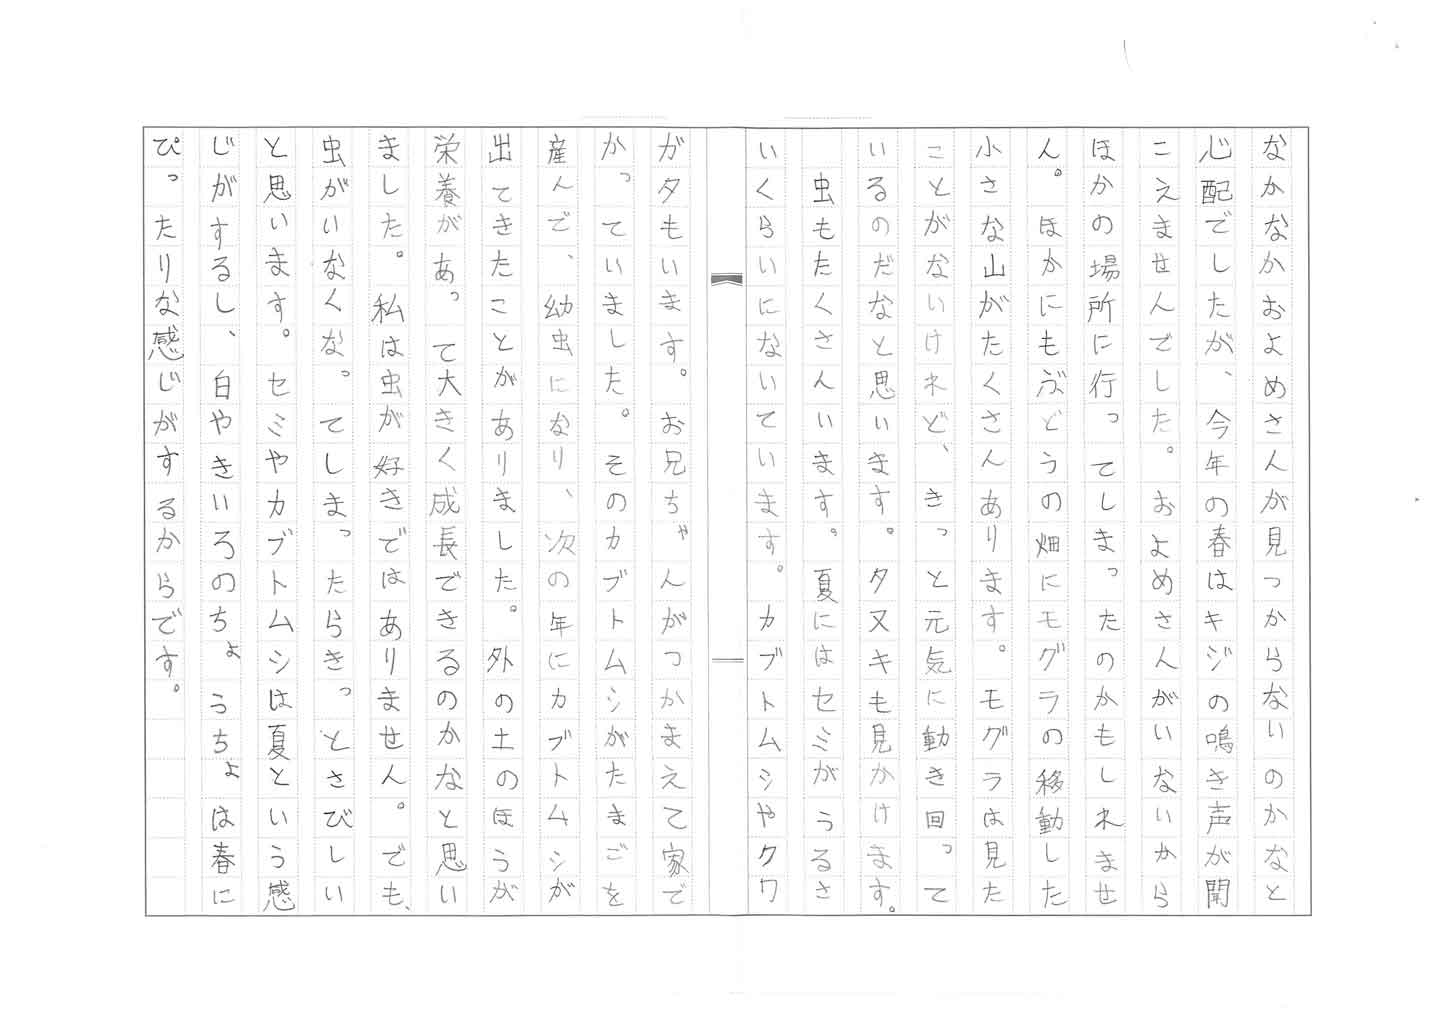 なかなかおよめさんが見つからないのかなと
心配でしたが、今年の春はキジの鳴き声が聞
こえませんでした。およめさんがいないから
ほかの場所に行ってしまったのかもしれませ
ん。ほかにもぶどうの畑にモグラの移動した
小さな山がたくさんあります。モグラは見た
ことがないけれど、きっと元気に動き回って
いるのだなと思います。タヌキも見かけます。
虫もたくさんいます。夏にはセミがうるさ
いくらいにないています。カブトムシやクワ
ガタもいます。お兄ちゃんがつかまえて家で
かっていました。そのカブトムシがたまごを
産んで、幼虫になり、次の年にカブトムシが
出てきたことがありました。外の土のほうが
栄養があって大きく成長できるのかなと思い
ました。私は虫が好きではありません。でも、
虫がいなくなってしまったらきっとさびしい
と思います。セミやカブトムシは夏という感
じがするし、白やきいろのちょうちょは春に
ぴったりな感じがするからです。